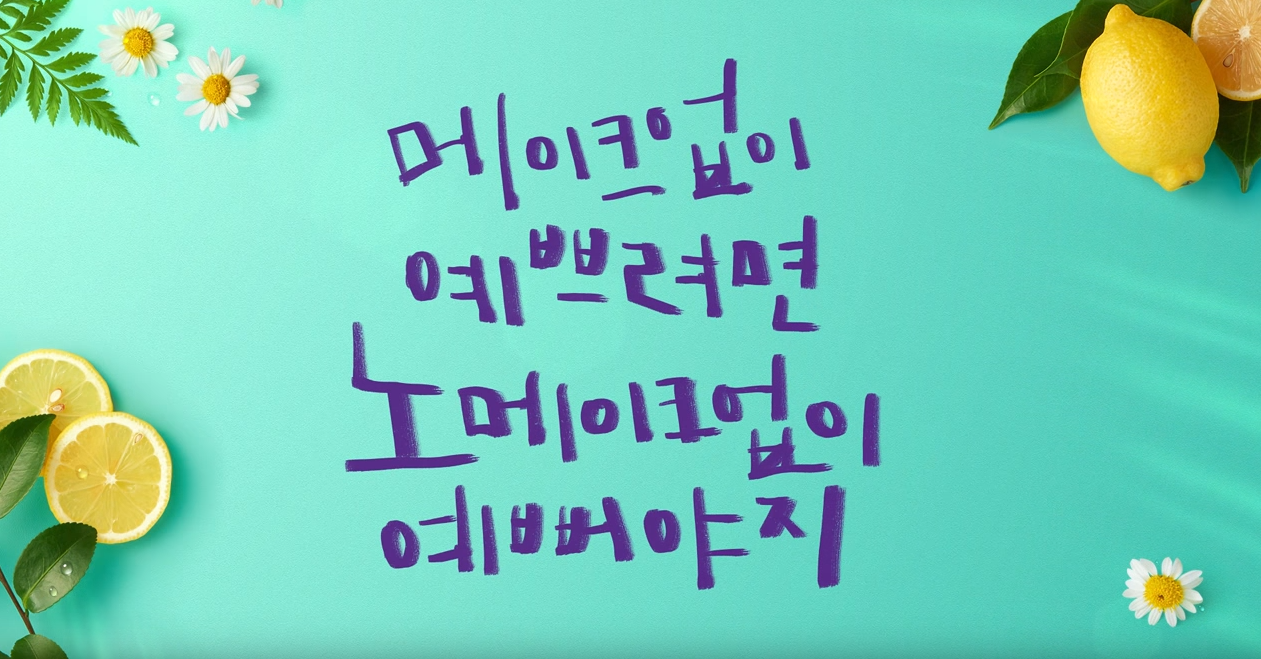 메이크업이
예쁘려면
노메이크업이
예뻐야지